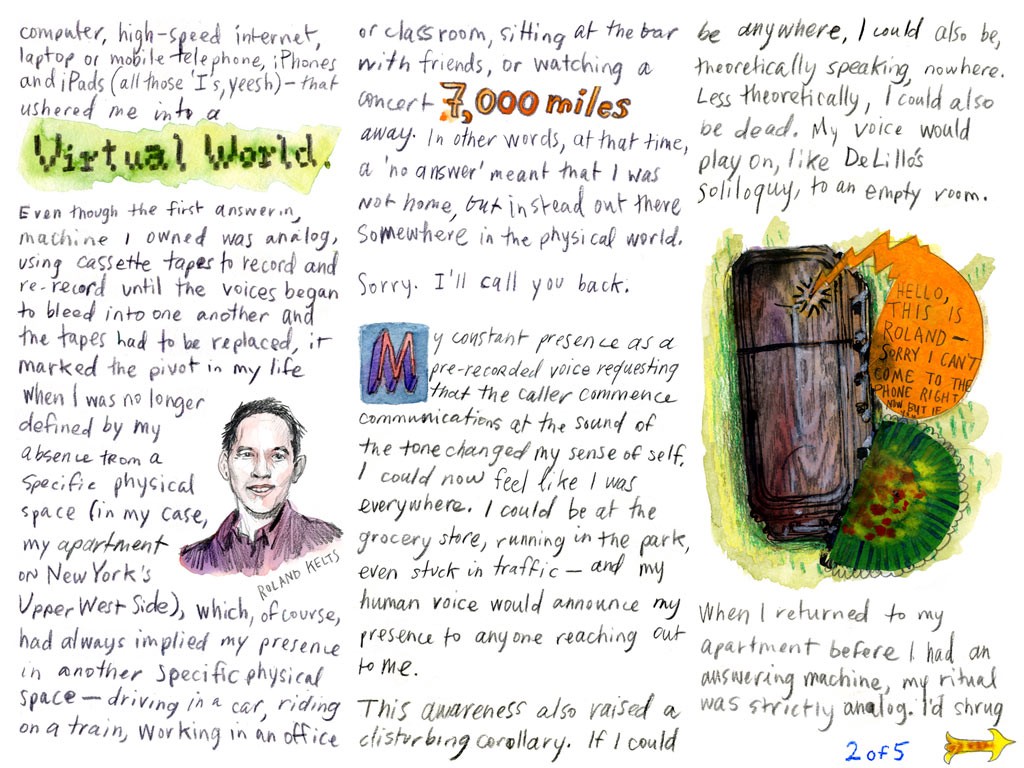 computer, high-speed internet,
laptop or mobile telephone, iPhones
and iPads (all those 'I's, yeesh) – that
ushered me into a
Virtual World.
Even though the first answerin,
machine I owned was analog,
using cassette tapes to record and
re-record until the voices began
to bleed into one another and
the tapes had to be replaced, it
marked the pivot in my life
when I was no longer
defined by my
absence from a
specific physical
space (in my case,
my apartment
on New York's
Upper West Side), which, of course,
had always implied my presence
in another specific physical
space — driving in a car, riding
on a train, working in an office
ROLAND KELTS
or classroom, sitting at the bar
with friends, or watching a
concert 7,000 miles
away. In other words, at that time,
a 'no answer' meant that I was
not home, but instead out there
somewhere in the physical world.
Sorry. I'll call you back.
My constant presence as a
pre-recorded voice requesting
that the caller commence
communications at the sound of
the tone changed my sense of self.
I could now feel like I was
everywhere. I could be at the
grocery store, running in the park,
even stuck in traffic — and my
human voice would announce my
presence to anyone reaching out
to me.
This awareness also raised a
disturbing corollary. If I could
be anywhere, I could also be,
theoretically speaking, nowhere.
Less theoretically, I could also
be dead. My voice would
play on, like DeLillo's
soliloquy, to an empty room.
HELLO,
THIS IS
ROLAND —
SORRY I CAN'T
COME TO THE
PHONE RIGHT
NOW, BUT IF
When I returned to my
apartment before I had an
answering machine, my ritual
was strictly analog. I'd shrug
2 of 5